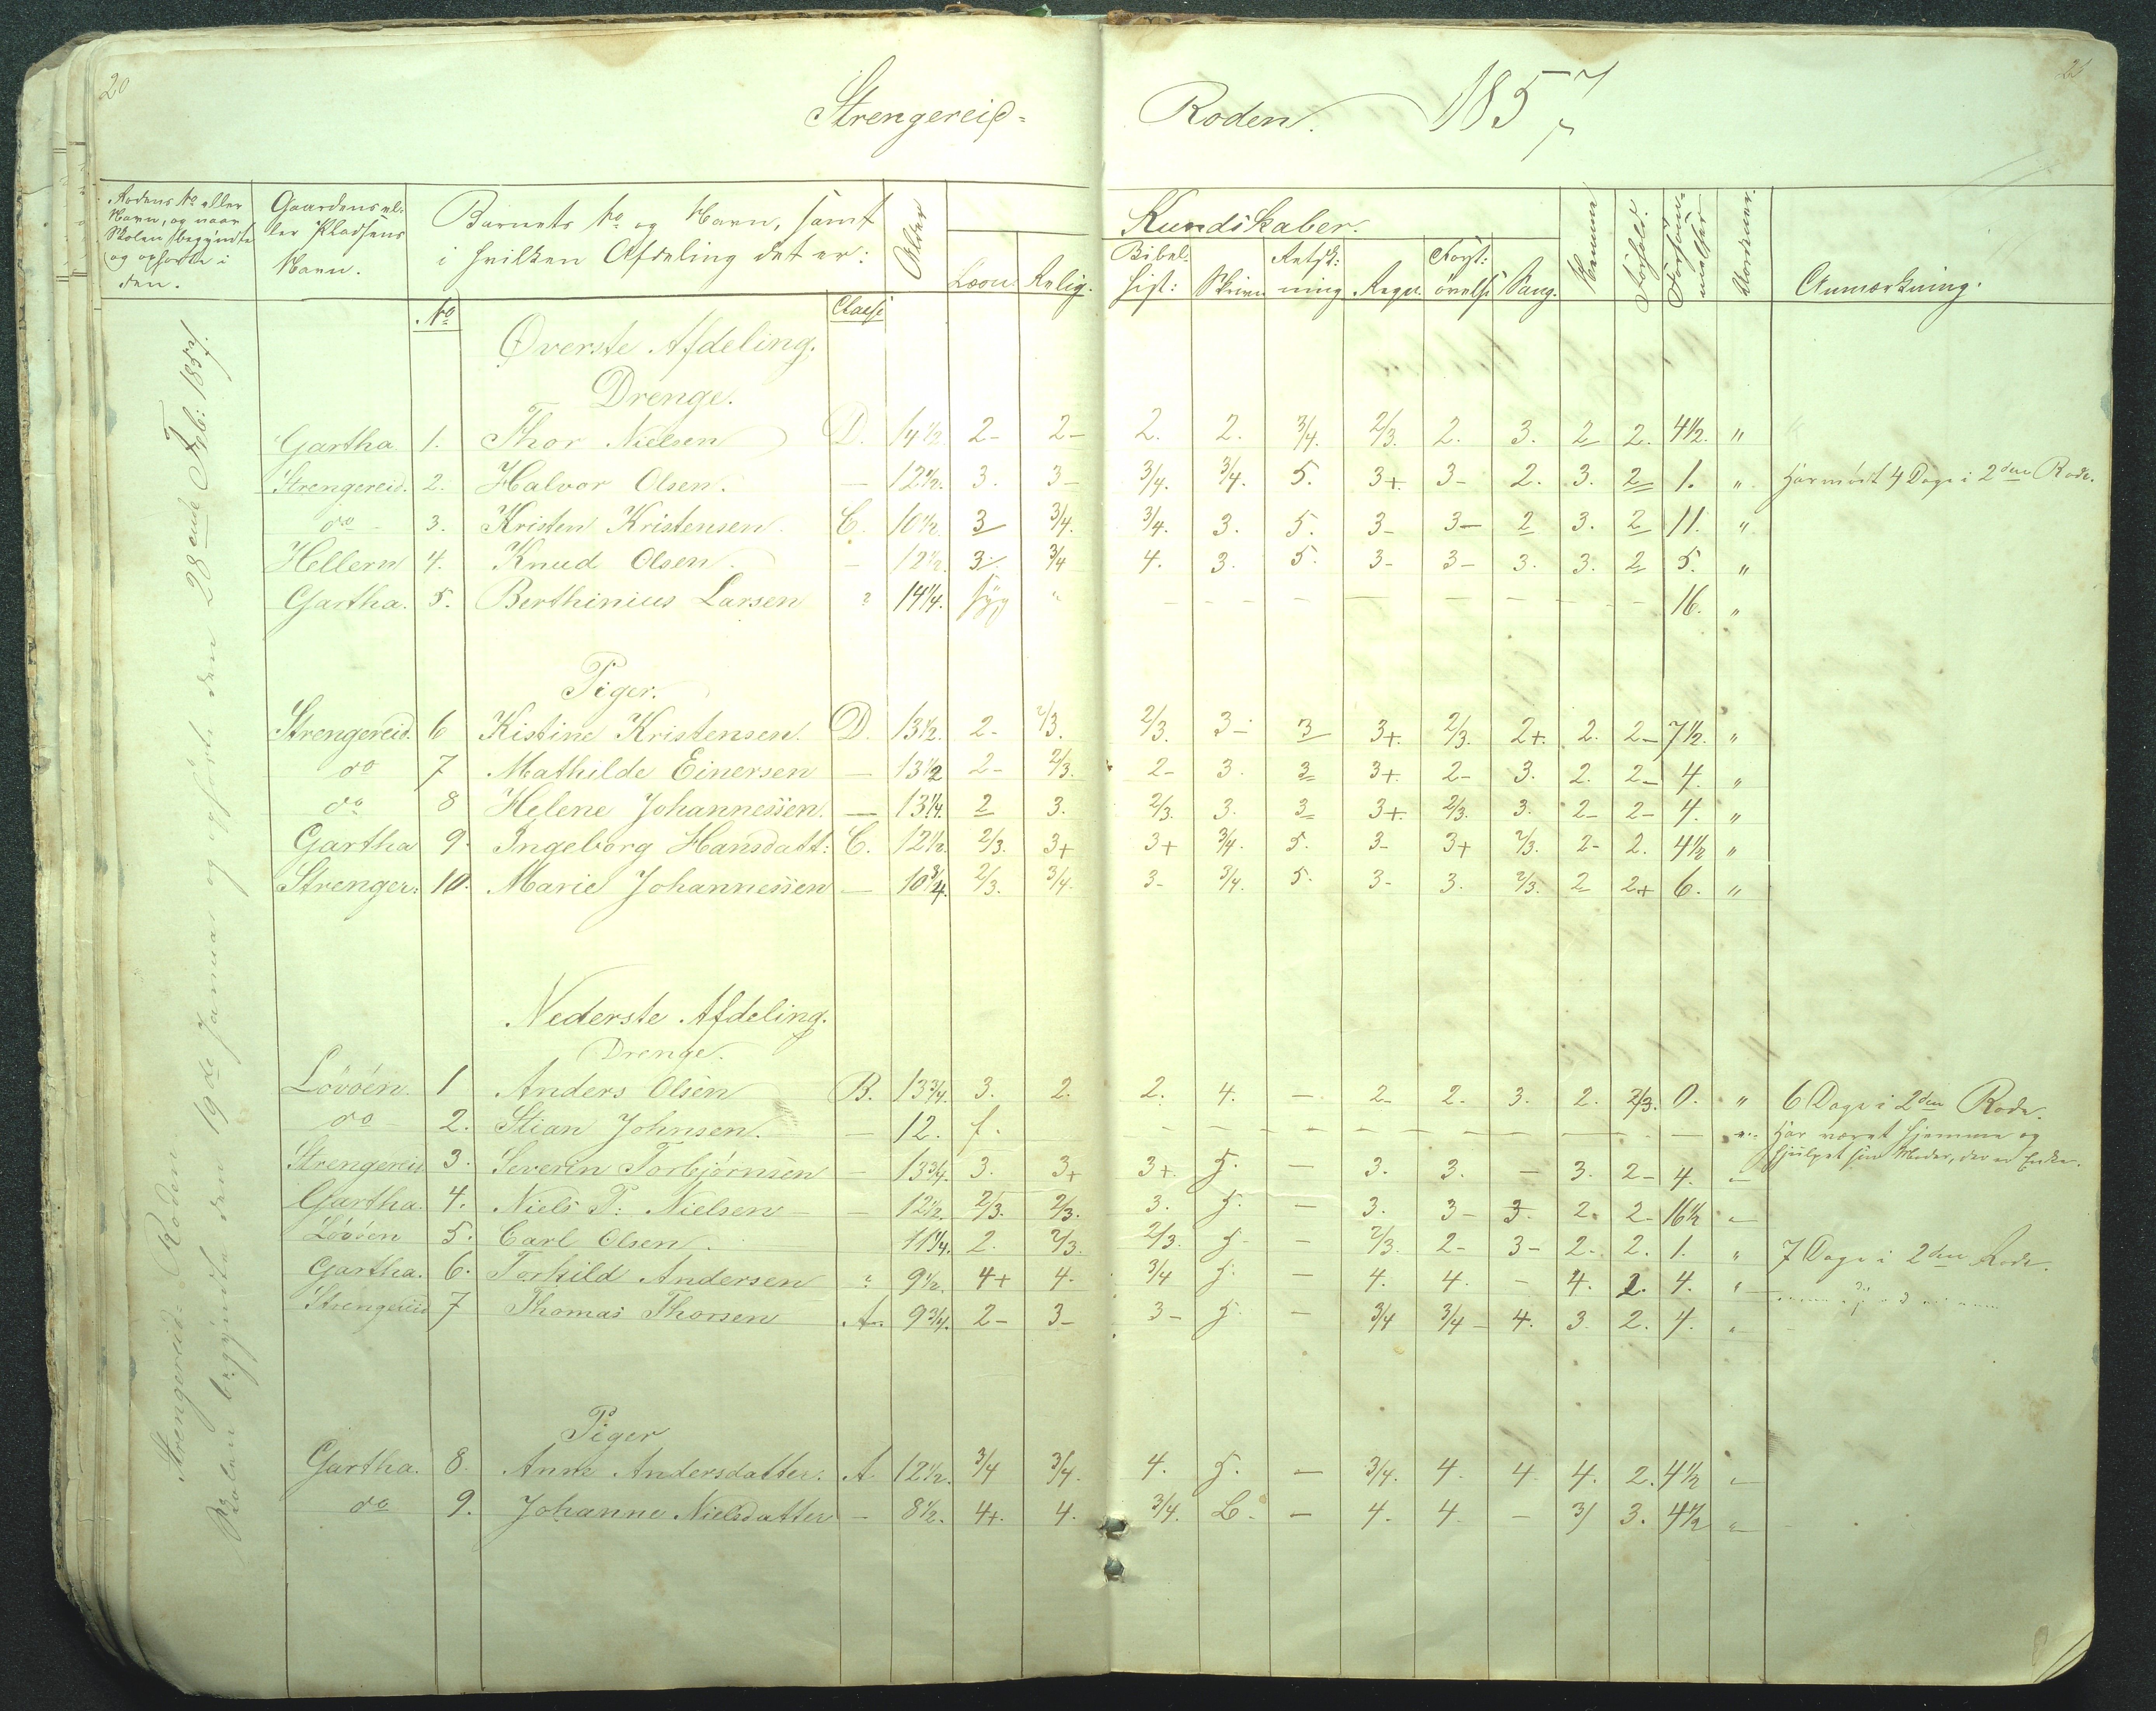 20
21
Strengereid= Roden. 1857
Rodens No eller Navn, og naar Skolen begyndte og ophørte i den.
Gaardens eller Pladsens Navn.
Barnets No og Navn, samt i hvilken Afdeling det er:
Alder
Kundskaber.
Læsn. Relig. Bibel: hist: Skrivn Retsk: ning Regn. Forst: øvelse Sang.
Nemme
Forhold.
Forsømmelser
Anmærkning.
No Classe
Strengereid= Roden
Skolen begyndte den 19de Januar og ophørte den 28ende Feb: 1857.
Øverste Afdeling.
Drenge.
Gartha. 1. Thor Nielsen D. 14 1/2. 2- 2- 2. 2. 3/4. 2/3. 2. 3. 2 2. 4 1/2. "
Strengereid. 2. Halvor Olsen. — 12 1/2. 3. 3- 3/4. 3/4. 5. 3+ 3- 2. 3. 2 1. " Har mødt 4 Dage i 2den Rode.
do - 3. Kristen Kristensen. C. 10 1/2. 3 3/4. 3/4. 3. 5. 3- 3- 2 3. 2 11. "
Hellern 4. Knud Olsen. - 12 1/2. 3. 3/4 4. 3. 5. 3- 3- 3. 3. 2 5. "
Gartha. 5. Berthinius Larsen ? 14 1/4. syg " - - - - - - - - 16. "
Piger.
Strengereid. 6 Kistine Kristensen. D. 13 1/2. 2- 2/3. 2/3. 3- 3 3+. 2/3. 2+. 2. 2- 7 1/2. "
do 7 Mathilde Einersen — 13 1/2 2- 2/3. 2- 3. 3 3+. 2- 3. 2. 2- 4. "
do 8 Helene Johannessen. — 13 1/4. 2 3. 2/3. 3. 3 3+. 2/3. 3. 2- 2- 4. "
Gartha 9. Ingeborg Hansdatt: C. 12 1/2. 2/3. 3+ 3+ 3/4. 5. 3- 3+ 2/3. 2- 2. 4 1/2 "
Strenger: 10. Marie Johannessen — 10 3/4. 2/3. 3/4. 3- 3/4. 5. 3- 3. 2/3. 2 2+ 6. "
Nederste Afdeling.
Drenge.
Løvøen. 1 Anders Olsen B. 13 3/4. 3. 2. 2. 4. — 2- 2. 3. 2. 2/3. 0. " 6 Dage i 2den Rode.
do 2. Stian Johnsen. — 12. f. - - - - - - - - - - " Har været hjemme og
hjulpet sin Moder, der er Enke.
Strengereid 3. Severin Torbjørnsen — 13 3/4. 3. 3+ 3+. — 3. 3. — 3. 2- 4. "
Gartha. 4. Niels P: Nielsen — 12 1/2. 2/3. 2/3. 3. — 3. 3- 3. 2. 2- 16 1/2 "
Løvøen 5. Carl Olsen. 11 3/4. 2. 2/3. 2/3. — 2/3. 2- 3- 2. 2. 1. " 7 Dage i 2den Rode.
Gartha. 6. Torkild Andersen " 9 1/2. 4+ 4. 3/4 — 4. 4. - 4. 2. 4. "
Strengereid 7 Thomas Thorsen A. 9 3/4. 2- 3- 3- — 3/4 3/4- 4. 3. 2. 4. "
Piger
Gartha. 8. Anne Andersdatter. A 12 1/2. 3/4 3/4. 4. — 3/4. 4. 4 4. 2. 4 1/2 "
do 9. Johanne Nielsdatter - 8 1/2. 4+. 4. 3/4. — 4. 4. - 3. 4 1/2 "